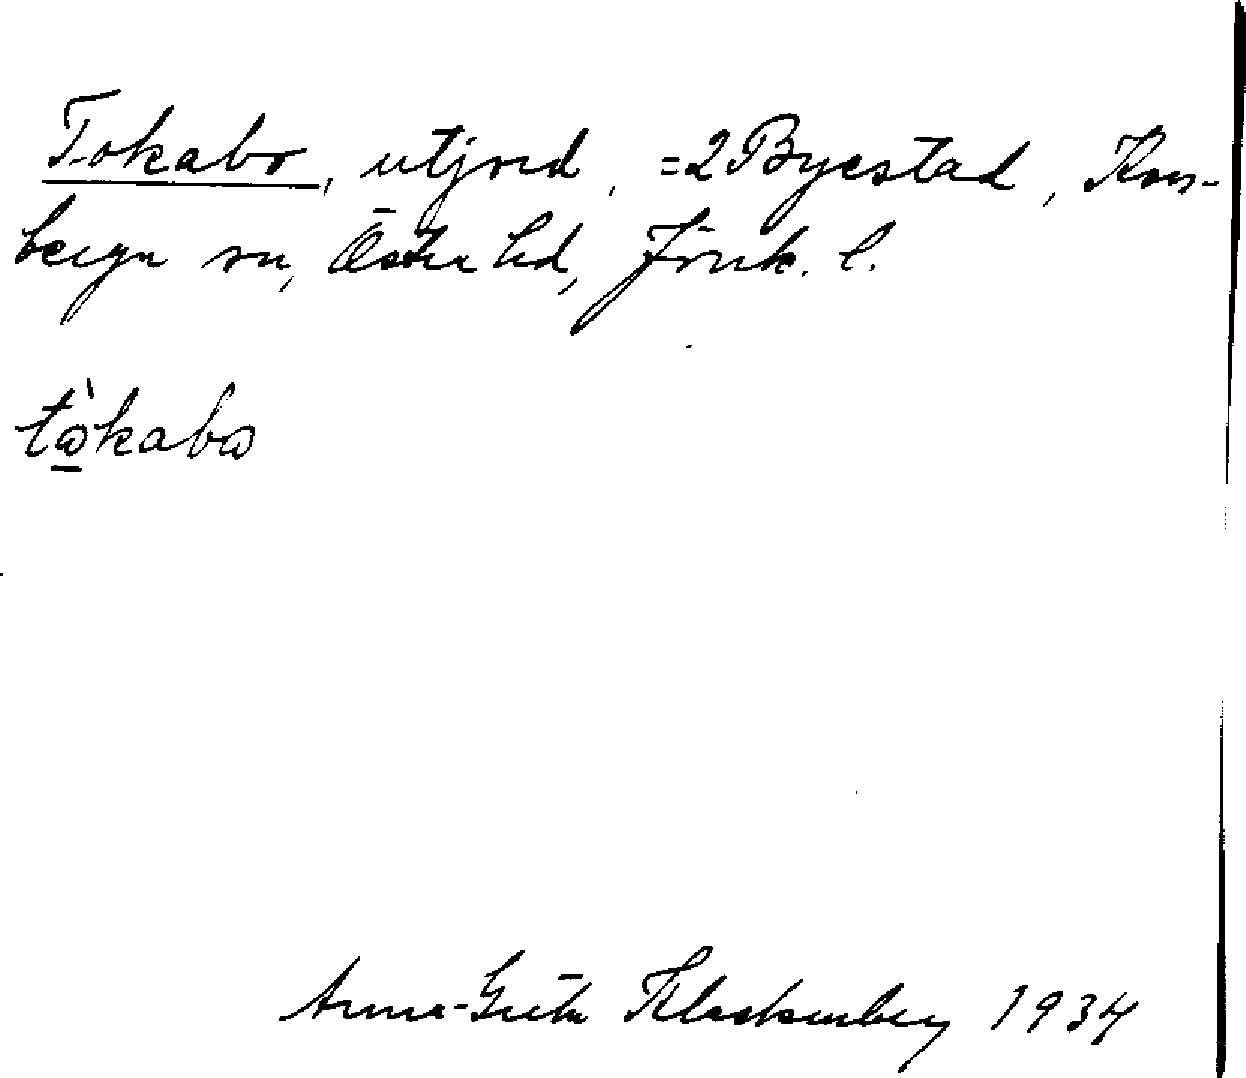 Tokabo, utjord, =2 Byestad, Kors-
berga sn, Östra hd, Jönk. l.
tὼ̲kabω
Anna-Greta Klackenberg 1934